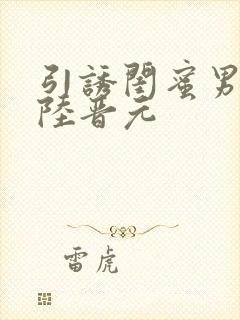 引誘閨蜜男
陸晋元
雷虎